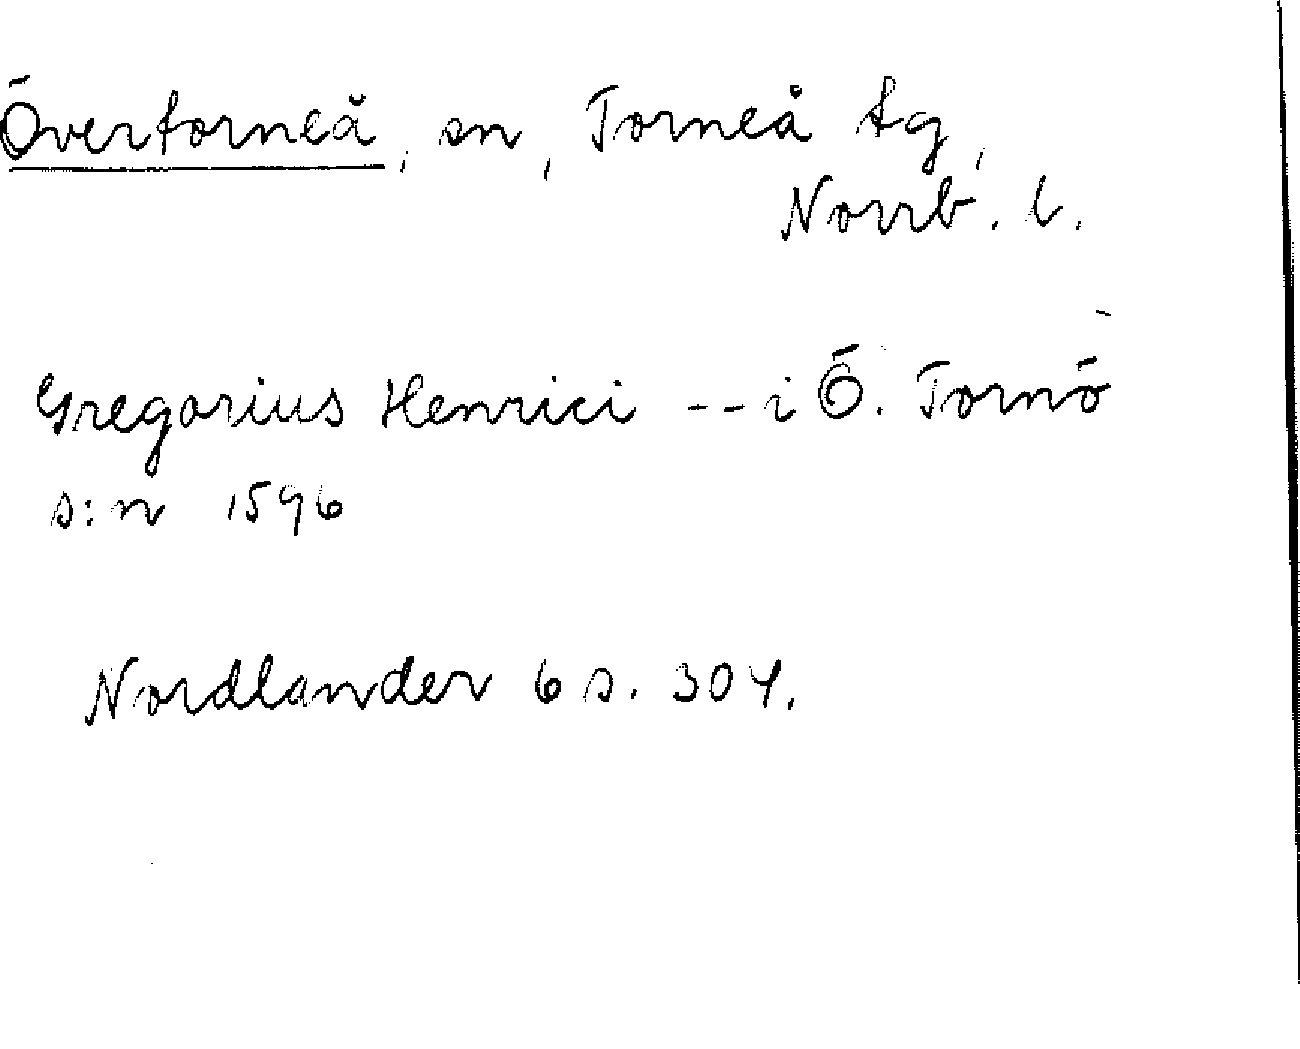 Övertorneå, sn, Torneå tg,
Norrb. l.
Gregorius Henrici -- i Ö. Tornö
s:n 1596
Nordlander 6 s. 304.